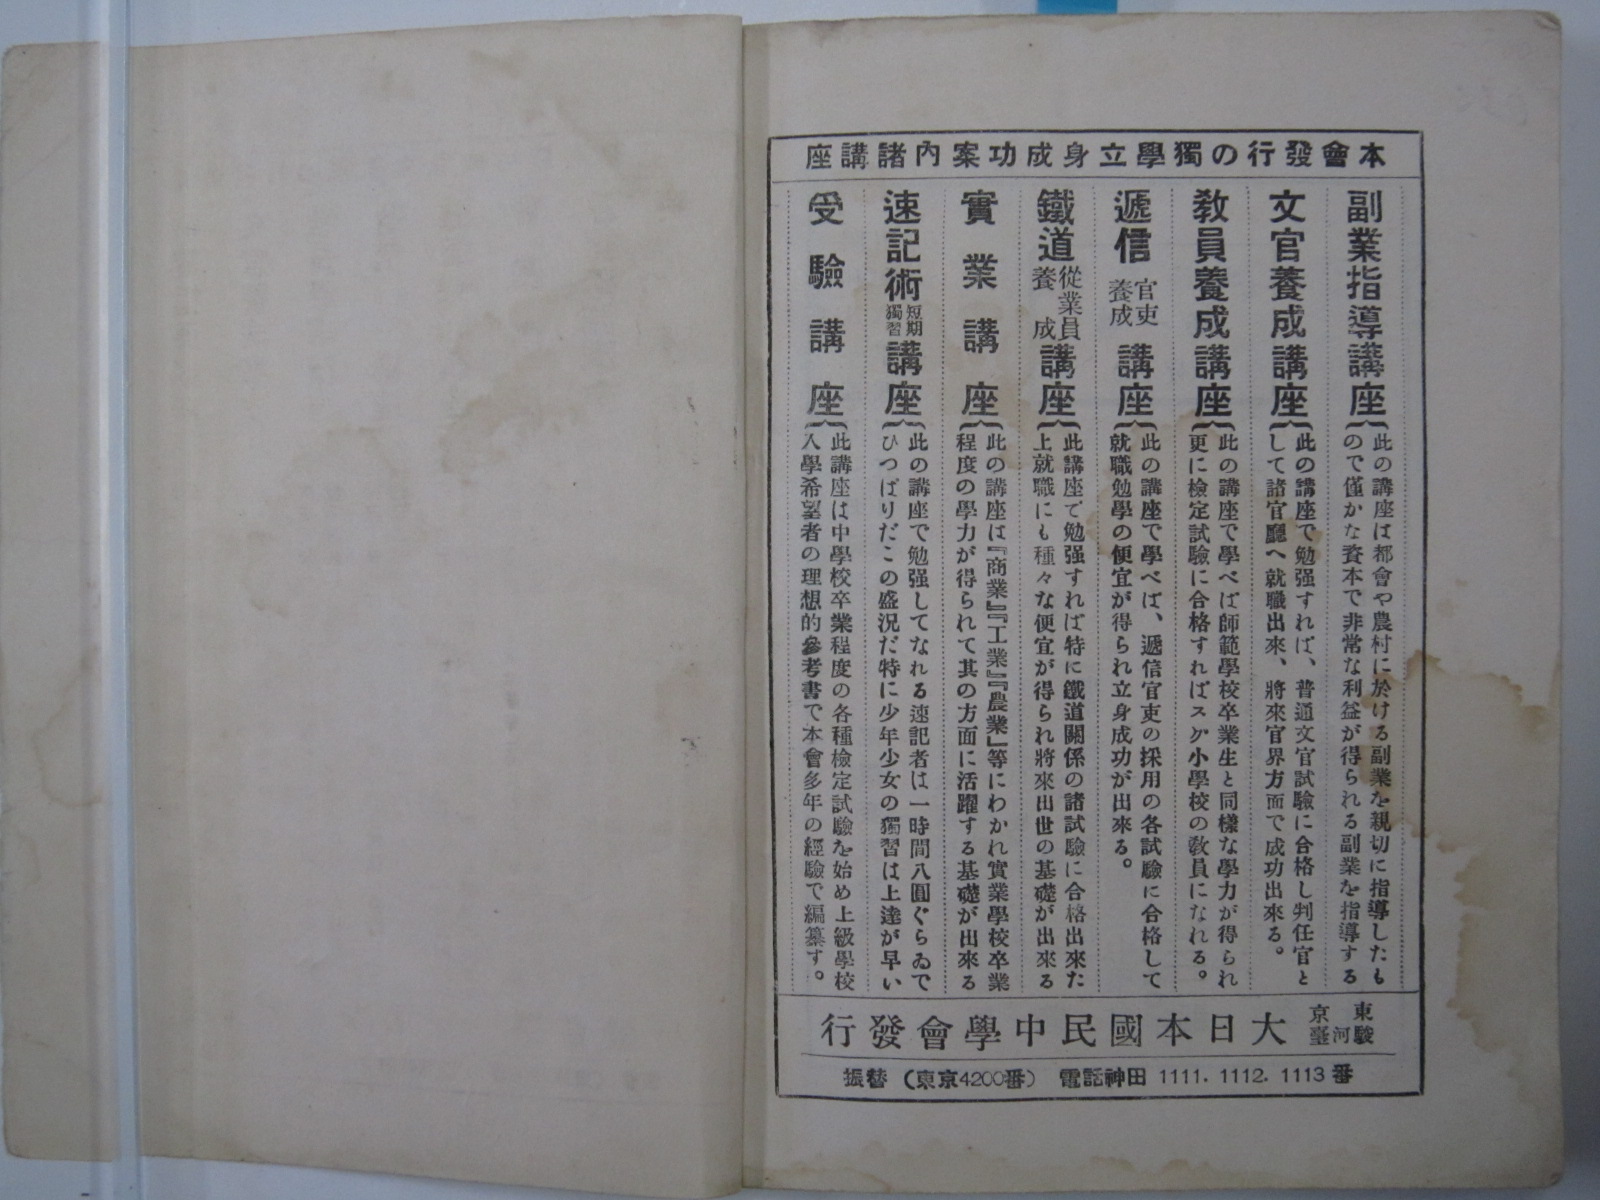 本會發行の獨學立身成功案內諸講座
副業指導講座
此の講座は都會や農村に於ける副業を親切に指導したも
ので僅かな資本で非常な利益が得られる副業を指導する
文官養成講座
此の講座で勉强すれば、普通文官試驗に合格し判任官と
して諸官廳へ就職出來、將來官界方面で成功出來る。
敎員養成講座
此の講座で學べば師範學校卒業生と同樣な學力が得られ
更に檢定試驗に合格すればスグ小學校の敎員になれる。
遞信官吏養成講座
此の講座で學べば、遞信官吏の採用の各試驗に合格して
就職勉學の便宜が得られ立身成功が出來る。
鐵道從業員養成講座
此講座で勉强すれば特に鐵道關係の諸試驗に合格出來た
上就職にも種々な便宜が得られ將來出世の基礎が出來る
實業講座
此の講座は『商業』『工業』『農業』等にわかれ實業學校卒業
程度の學力が得られて其の方面に活躍する基礎が出來る
速記術短期獨習講座
此の講座で勉强してなれる速記者は一時間八圓ぐらゐで
ひつぱりだこの盛況だ特に少年少女の獨習は上達が早い
受驗講座
此講座は中學校卒業程度の各種檢定試驗を始め上級學校
入學希望者の理想的參考書で本會多年の經驗で編纂す。
東京駿河臺
大日本國民中學會發行
振替（東京4200番） 電話神田 1111. 1112. 1113番